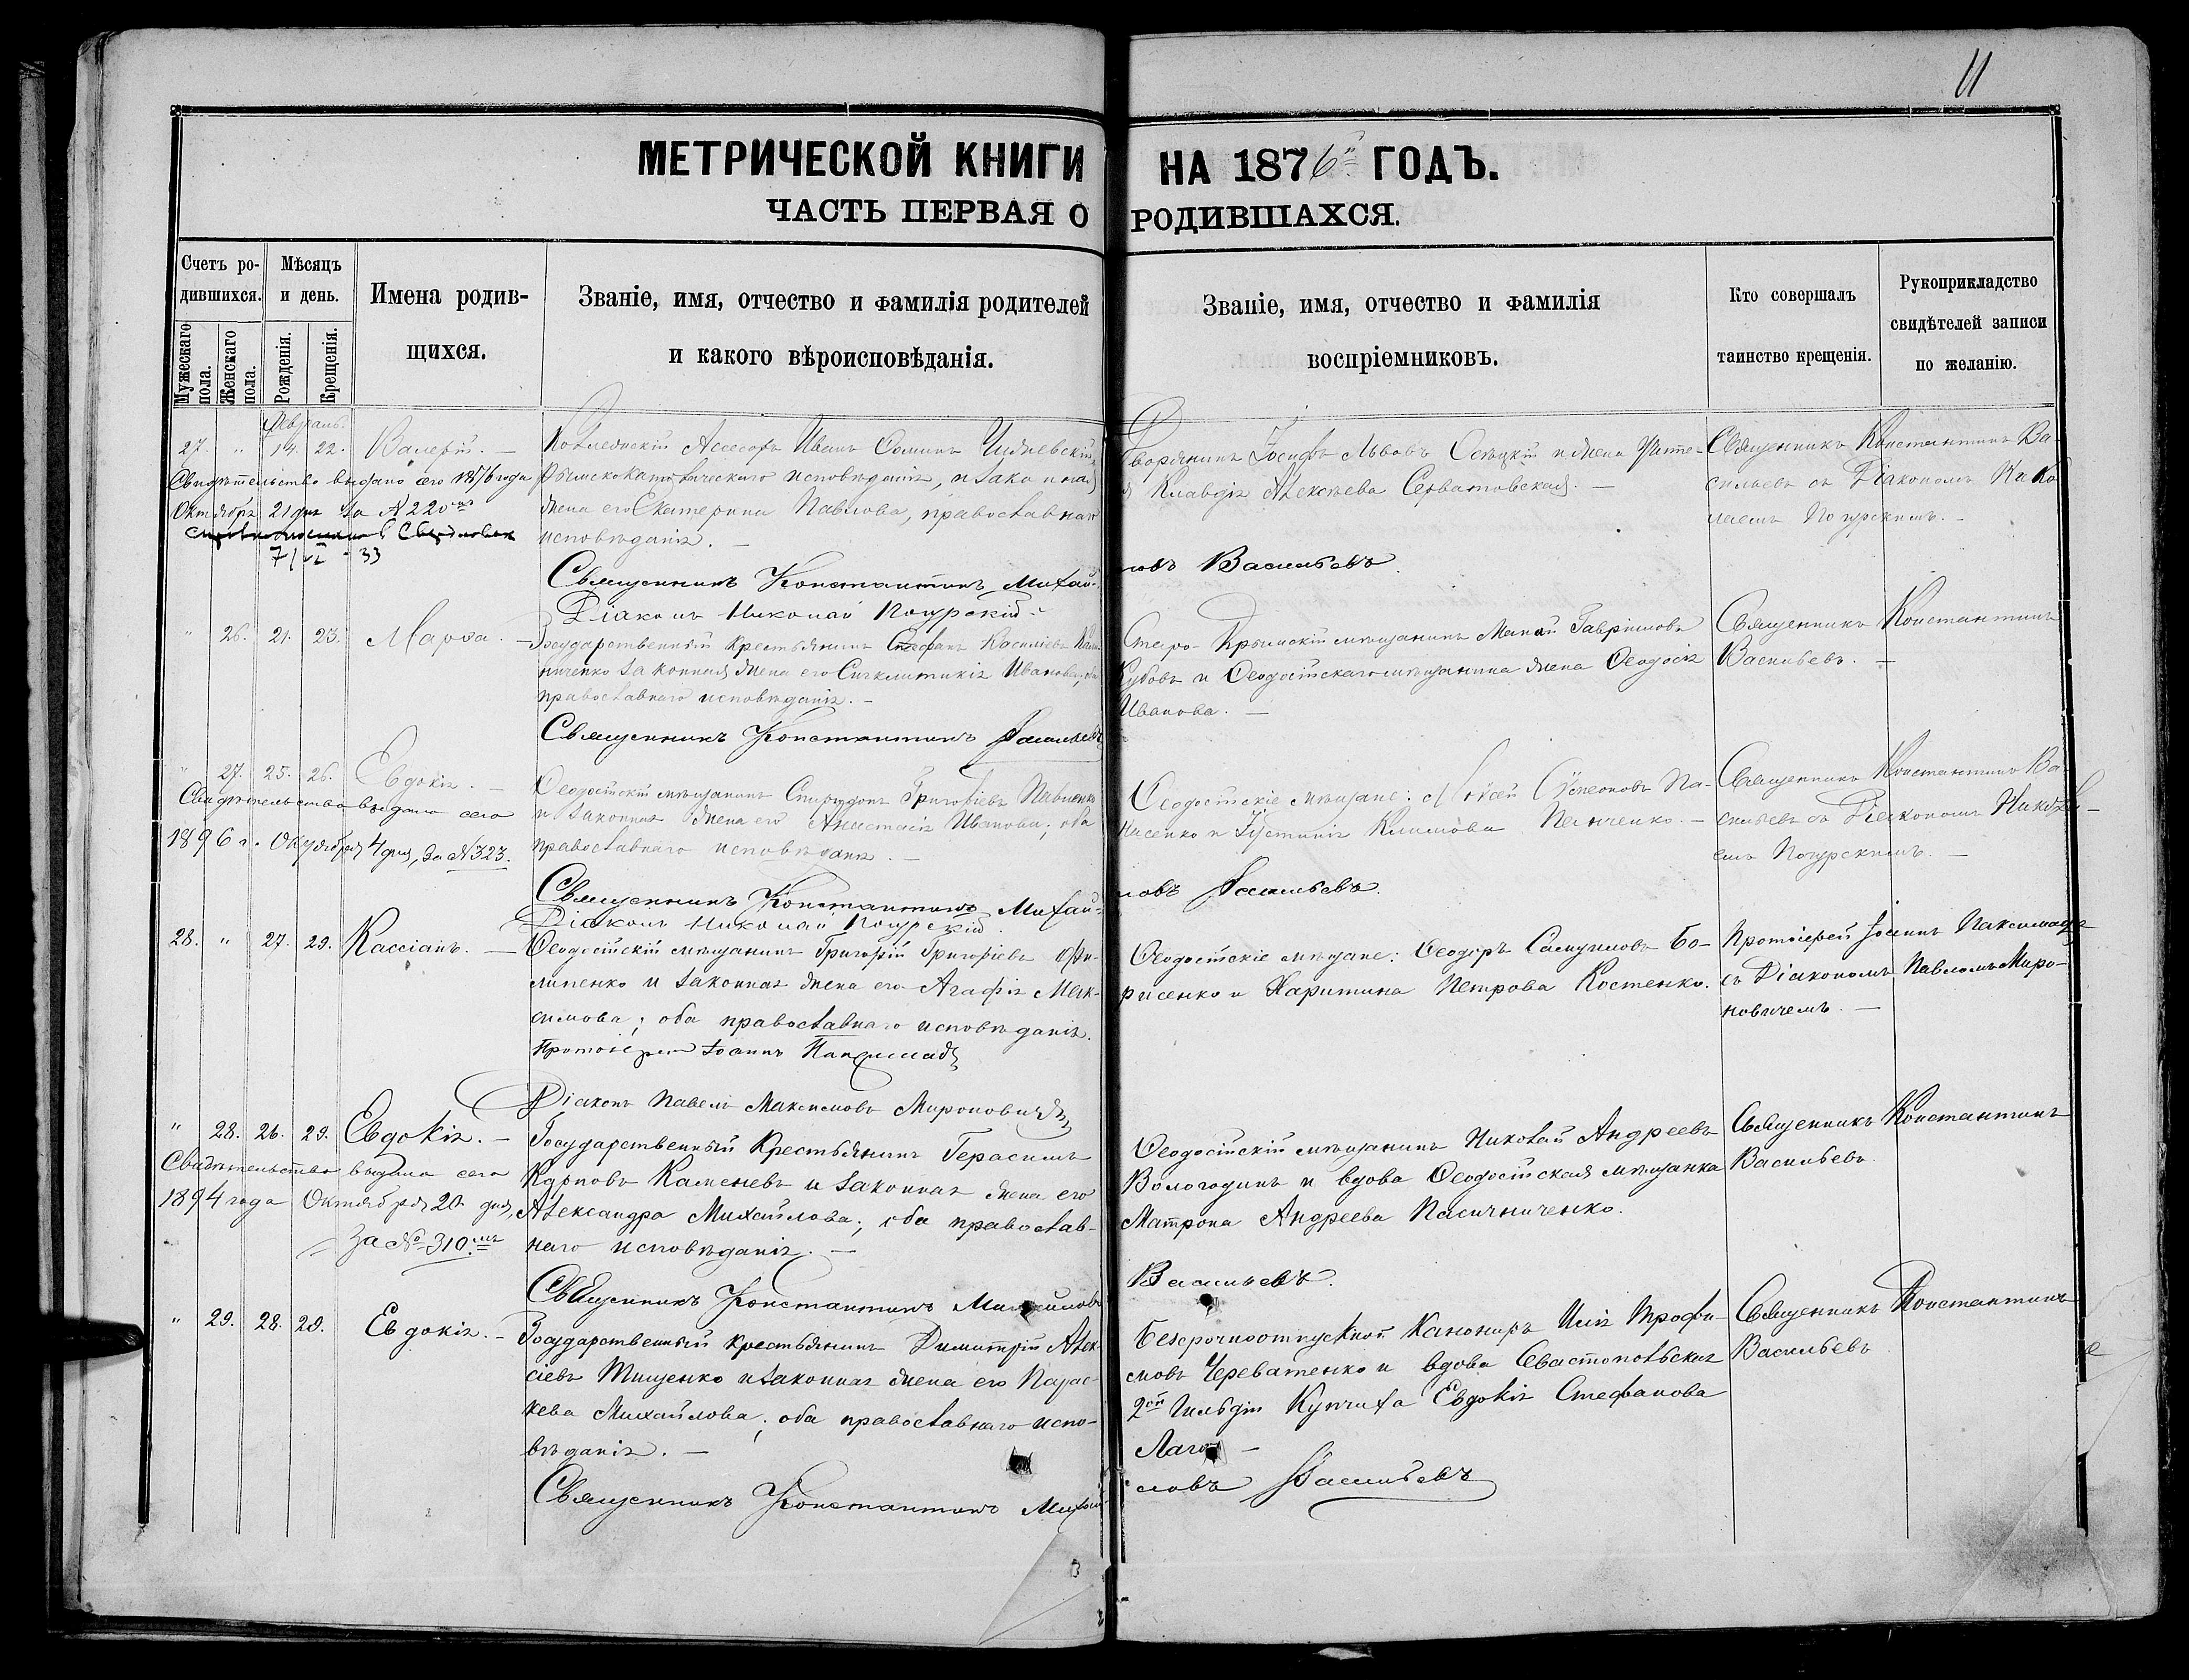 11
МЕТРИЧЕСКОЙ КНИГИ НА 1876й ГОДЪ.
ЧАСТЬ ПЕРВАЯ О РОДИВШАХСЯ.
Счетъ ро-
дившихся.
Мужескаго пола.
Женскаго пола.
Мѣсяцъ
и день.
Рожденія.
Крещенія.
Имена родив-
щихся.
Званіе, имя, отчество и фамилія родителей
и какого вѣроисповѣданія.
Званіе, имя, отчество и фамилія
воспріемниковъ.
Кто совершалъ
таинство крещенія.
Рукоприкладство
свидѣтелей записи
по желанію.
Февраль.
27. " 14. 22. Валерій. —
Свидѣтельство выдано сего 1876 года
Октября 21 дня за № 220мъ
7/VI - 33
Коллежскій Ассесоръ Иванъ
Римскокатолическаго исповѣданія, и законная
жена его Екатерина Павлова, православнаго
исповѣданія. —
Дворянинъ Іосифъ Львовъ и жена Учите-
ля Клавдія Алексѣева —
Священникъ Константинъ Ва-
сильевъ съ Діакономъ Нико
лаемъ Погурскимъ. —
Священникъ Константинъ Михай-
ловъ Васильевъ.
Діаконъ Николай Погурскій
" 26. 21. 23. Марѳа. —
Государственный крестьянинъ Стефанъ
законная жена его Синклитикія Иванова; оба
православнаго исповѣданія. —
Старо-Крымскій мѣщанинъ Гавриловъ
и Ѳеодосійскаго мѣщанина жена Ѳеодосія
Иванова. —
Священникъ Константинъ
Васильевъ. —
Священникъ Константинъ Васильевъ
" 27. 25. 26. Евдокія. —
Свидѣтельство выдано сего
1896 г. Октября 4 дня, за № 323.
Ѳеодосійскій мѣщанинъ Спиридонъ Григорьевъ Павленко
и законная жена его Анастасія Иванова; оба
православнаго исповѣданія. —
Ѳеодосійскіе мѣщане: Моѵсей Сѵмеоновъ Па-
насенко и Іустинія Климова Панченко. —
Священникъ Константинъ Ва-
сильевъ съ Діакономъ Никола-
емъ Погурскимъ. —
Священникъ Константинъ Михай-
ловъ Васильевъ.
Діаконъ Николай Погурскій.
28. " 27. 29. Кассіанъ. —
Ѳеодосійскій мѣщанинъ Григорій Григорьевъ Фи-
липенко и законная жена его Агафія Мак-
симова; оба православнаго исповѣданія.
Ѳеодосійскіе мѣщане: Ѳеодоръ Самуиловъ Бо-
рисенко и Харитина Петрова Костенко.
Протоіерей Іоаннъ Паксимадъ
съ Діакономъ Павломъ Миро-
новичемъ. —
Протоіерей Іоаннъ Паксимадъ
Діаконъ Павелъ Максимовъ Мироновичъ
" 28. 26. 29. Евдокія. —
Свидѣтельство выдано сего
1894 года Октября 20 дня,
За № 310.мъ
Государственный Крестьянинъ Герасимъ
Карповъ Каменевъ и законная жена его
Александра Михайлова; оба православ-
наго исповѣданія. —
Ѳеодосійскій мѣщанинъ Николай Андреевъ
Вологодинъ и вдова Ѳеодосійская мѣщанка
Матрона Андреева Пасичниченко.
Священникъ Константинъ
Васильевъ
Священникъ Константинъ Михайловъ
Васильевъ.
" 29. 28. 29. Евдокія. —
Государственный крестьянинъ Димитрій Алек-
сѣевъ Тищенко и законная жена его Парас-
кева Михайлова; оба православнаго испо-
вѣданія. —
Безсрочноотпускной Канониръ Илія Трофи-
мовъ Череватенко и вдова Севастопольская
2ой Гильдіи Купчиха Евдокія Стефанова
—
Священникъ Константинъ
Васильевъ
Священникъ Константинъ Михай-
ловъ Васильевъ